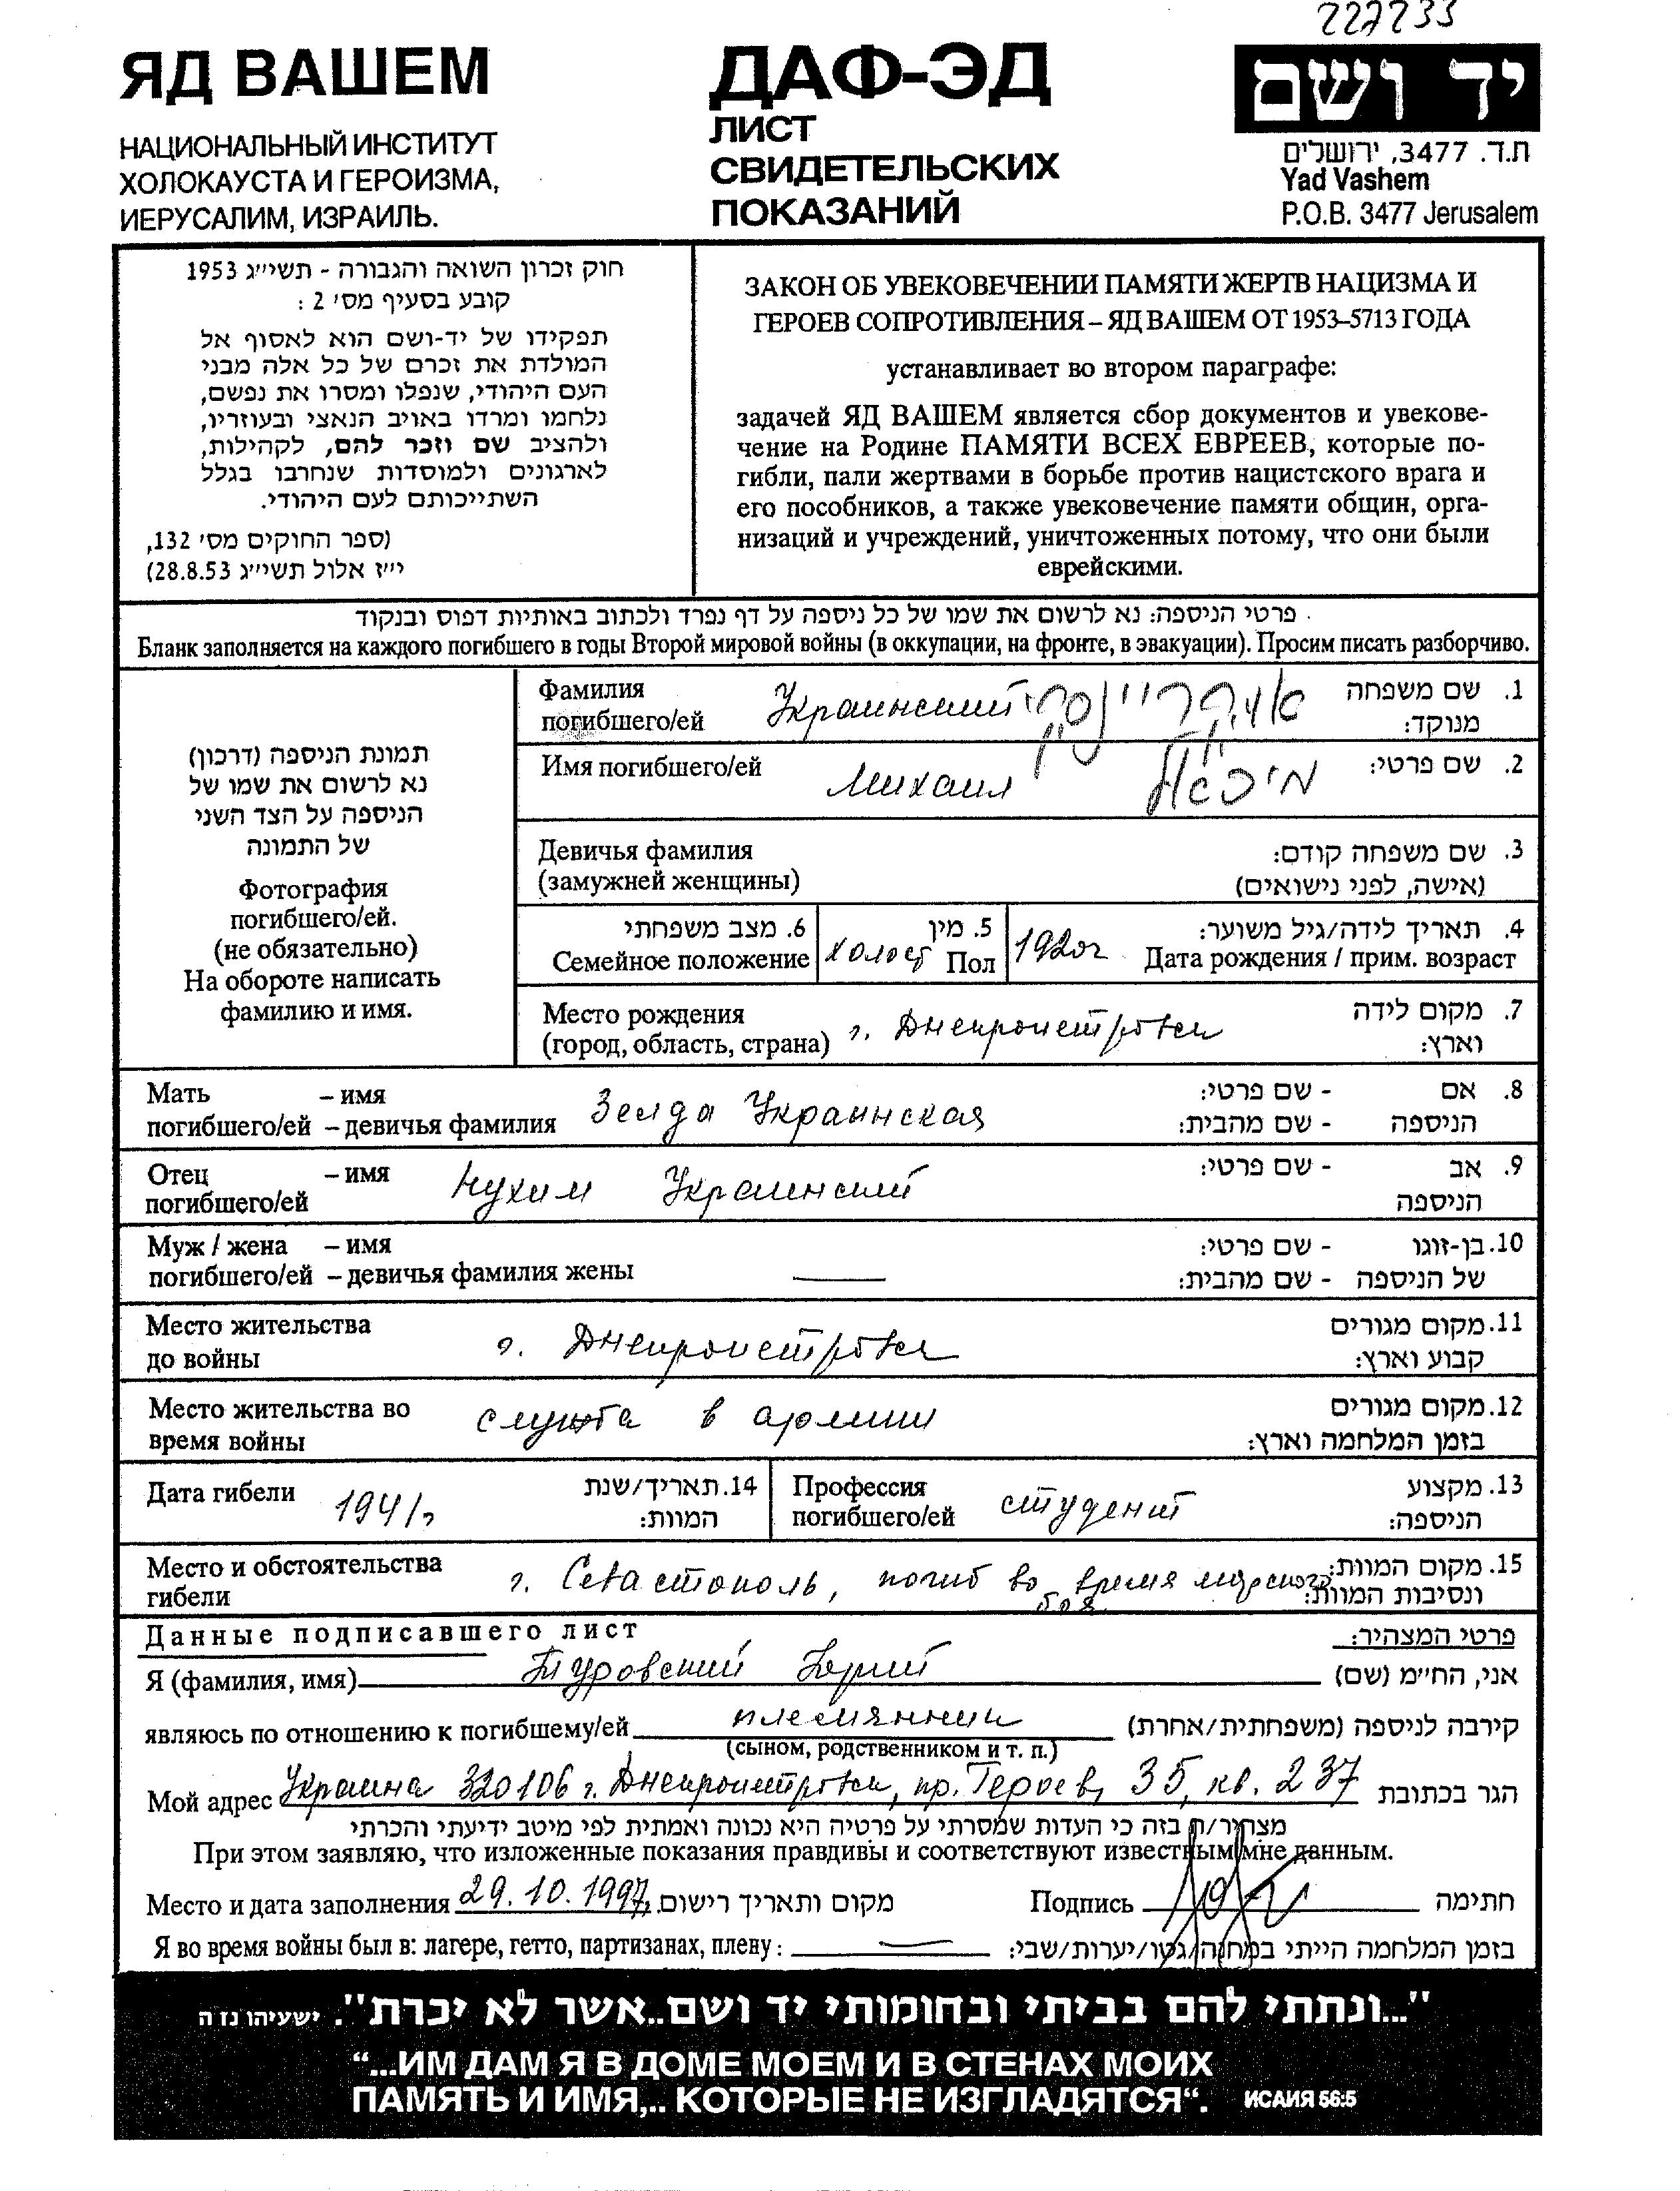 222233
ЯД ВАШЕМ
НАЦИОНАЛЬНЫЙ ИНСТИТУТ
ХОЛОКАУСТА И ГЕРОИЗМА,
ИЕРУСАЛИМ, ИЗРАИЛЬ.
ДАФ-ЭД
ЛИСТ
СВИДЕТЕЛЬСКИХ
ПОКАЗАНИЙ
יד ושם
ת.ד. 3477, ירושלים
Yad Vashem
P.O.B. 3477 Jerusalem
חוק זכרון השואה והגבורה - תשי״ג 1953
קובע בסעיף מס׳ 2 :
תפקידו של יד-ושם הוא לאסוף אל
המולדת את זכרם של כל אלה מבני
העם היהודי, שנפלו ומסרו את נפשם,
נלחמו ומרדו באויב הנאצי ובעוזריו,
ולהציב שם וזכר להם, לקהילות,
לארגונים ולמוסדות שנחרבו בגלל
השתייכותם לעם היהודי.
(ספר החוקים מס׳ 132,
י״ז אלול תשי״ג 28.8.53)
ЗАКОН ОБ УВЕКОВЕЧЕНИИ ПАМЯТИ ЖЕРТВ НАЦИЗМА И
ГЕРОЕВ СОПРОТИВЛЕНИЯ – ЯД ВАШЕМ ОТ 1953–5713 ГОДА
устанавливает во втором параграфе:
задачей ЯД ВАШЕМ является сбор документов и увекове-
чение на Родине ПАМЯТИ ВСЕХ ЕВРЕЕВ, которые по-
гибли, пали жертвами в борьбе против нацистского врага и
его пособников, а также увековечение памяти общин, орга-
низаций и учреждений, уничтоженных потому, что они были
еврейскими.
פרטי הניספה: נא לרשום את שמו של כל ניספה על דף נפרד ולכתוב באותיות דפוס ובנקוד
Бланк заполняется на каждого погибшего в годы Второй мировой войны (в оккупации, на фронте, в эвакуации). Просим писать разборчиво.
תמונת הניספה (דרכון)
נא לרשום את שמו של
הניספה על הצד השני
של התמונה
Фотография
погибшего/ей.
(не обязательно)
На обороте написать
фамилию и имя.
Фамилия Украинский אוקריינסקי 1. שם משפחה
погибшего/ей מנוקד:
Имя погибшего/ей Михаил מיכאל 2. שם פרטי:
Девичья фамилия 3. שם משפחה קודם:
(замужней женщины) (אישה, לפני נישואים)
6. מצב משפחתי 5. מין 4. תאריך לידה/גיל משוער:
Семейное положение холост Пол 1920г Дата рождения / прим. возраст
Место рождения 7. מקום לידה
(город, область, страна) г. Днепропетровск וארץ:
Мать – имя 8. אם - שם פרטי:
погибшего/ей – девичья фамилия Зелда Украинская הניספה - שם מהבית:
Отец – имя Нухим Украинский 9. אב - שם פרטי:
погибшего/ей הניספה
Муж / жена – имя 10. בן-זוגו - שם פרטי:
погибшего/ей – девичья фамилия жены — של הניספה - שם מהבית:
Место жительства 11. מקום מגורים
до войны г. Днепропетровск קבוע וארץ:
Место жительства во служба в армии 12. מקום מגורים
время войны בזמן המלחמה וארץ:
Дата гибели 1941г 14. תאריך/שנת Профессия студент 13. מקצוע
המוות: погибшего/ей הניספה:
Место и обстоятельства 15. מקום המוות:
гибели г. Севастополь, погиб во время морского ונסיבות המוות:
боя
Данные подписавшего лист פרטי המצהיר:
Я (фамилия, имя) Туровский Юрий אני, החי״מ (שם)
являюсь по отношению к погибшему/ей племянник קירבה לניספה (משפחתית/אחרת)
(сыном, родственником и т. п.)
Мой адрес Украина 320106 г. Днепропетровск, пр. Героев, 35, кв. 237 הגר בכתובת
מצהיר/ה בזה כי העדות שמסרתי על פרטיה היא נכונה ואמתית לפי מיטב ידיעתי והכרתי
При этом заявляю, что изложенные показания правдивы и соответствуют известным мне данным.
Место и дата заполнения 29.10.1997г. מקום ותאריך רישום Подпись חתימה
Я во время войны был в: лагере, гетто, партизанах, плену : — בזמן המלחמה הייתי במחנה/גטו/יערות/שבי:
"...ונתתי להם בביתי ובחומותי יד ושם..אשר לא יכרת". ישעיהו נז ה
“...ИМ ДАМ Я В ДОМЕ МОЕМ И В СТЕНАХ МОИХ
ПАМЯТЬ И ИМЯ,.. КОТОРЫЕ НЕ ИЗГЛАДЯТСЯ“. ИСАИЯ 56:5